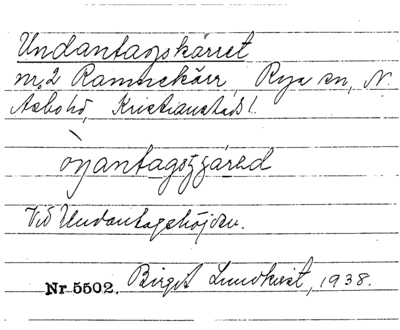 Undantagskärret
nr 2 Ramnekärr, Rya sn, N.
Åsbo hd, Kristianstads l.
Vid Undantagshöjden.
Nr 5502. Birgit Lundkvist, 1938.